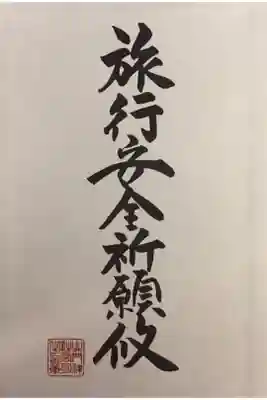 旅行安全祈願攸